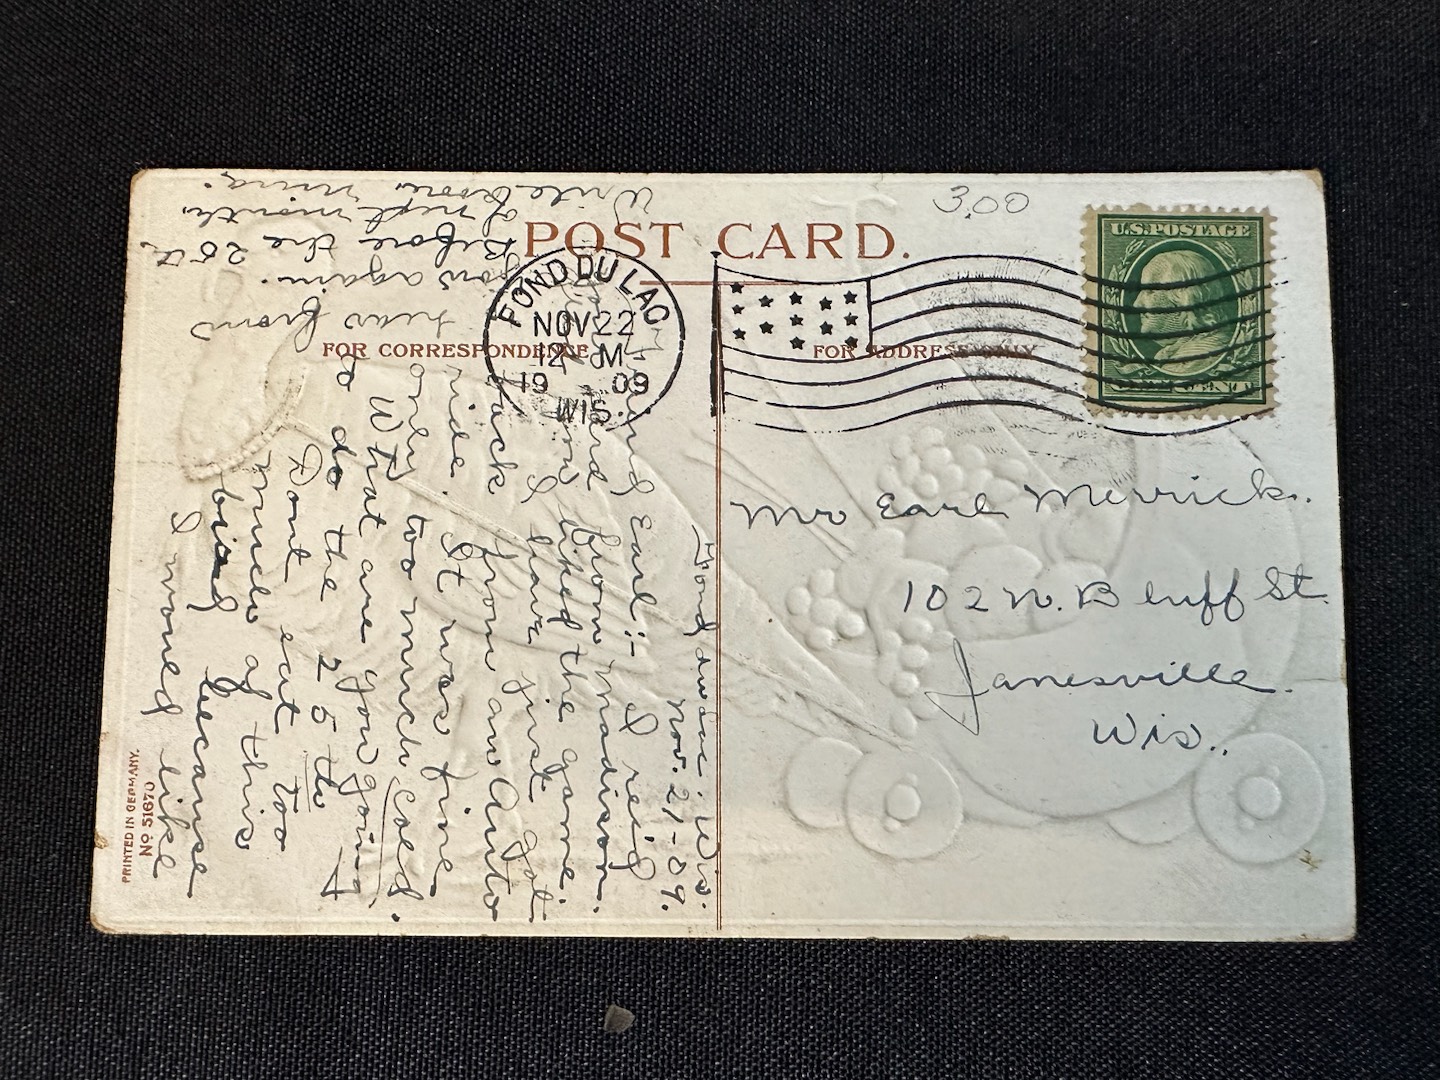 POST CARD.
3.00
U.S. POSTAGE
FOND DU LAC
NOV 22
12 M
19 09
WIS.
FOR CORRESPONDENCE
FOR ADDRESS ONLY
Mr Earl Merrick.
102 N. Bluff St.
Janesville.
Wis.
Fond du Lac. Wis.
Nov. 21-09.
Earl:- I rec'd
from Madison.
liked the game.
I have just got
back from an Auto
ride. It was fine
only too much cold.
What are you going
to do the 25th
Dont eat too
much of this
bird because
I would like
hear from
you again.
Before the 25th
of next month.
Write soon,
PRINTED IN GERMANY.
No 51670